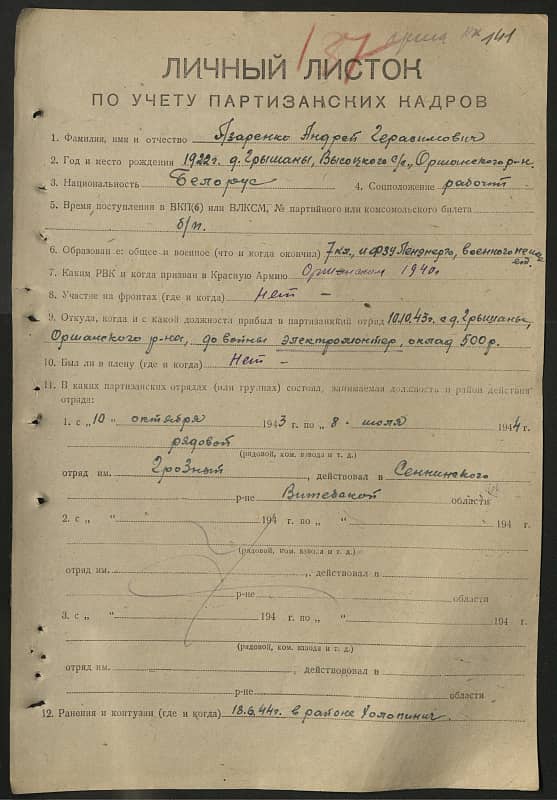 187 орша 141
ЛИЧНЫЙ ЛИСТОК
ПО УЧЕТУ ПАРТИЗАНСКИХ КАДРОВ
1. Фамилия, имя и отчество Азаренко Андрей Герасимович
2. Год и место рождения 1922г. д. Грышаны, Высоцкого с/с, Оршанского р-н.
3. Национальность Белорус 4. Соцположение рабочий
5. Время поступления в ВКП(б) или ВЛКСМ, № партийного или комсомольского билета
б/п.
6. Образование: общее и военное (что и когда окончил) 7 кл., и ФЗУ Ленэнерго, военного не имеет.
7. Каким РВК и когда призван в Красную Армию Оршанским 1940г
8. Участие на фронтах (где и когда) Нет —
9. Откуда, когда и с какой должности прибыл в партизанкий отряд 10.10.43г. с д. Грышаны,
Оршанского р-на, до войны электромонтер, оклад 500 р.
10. Был ли в плену (где и когда) Нет —
11. В каких партизанских отрядах (или группах) состоял, занимаемая должность и район действия
отряда:
1. с „10" октября 1943 г. по „8" июля 1944 г.
рядовой
(рядовой, ком. взвода и т. д.)
отряд им. Грозный, действовал в Сеннинского
р-не Витебской области
2. с „ " 194 г. по „ " 194 г.
(рядовой, ком. взвода и т. д.)
отряд им. , действовал в
р-не области
3. с „ " 194 г. по „ " 194 г.
(рядовой, ком. взвода и т. д.)
отряд им. , действовал в
р-не области
12. Ранения и контузии (где и когда) 18.6.44г. в районе Холопинич.